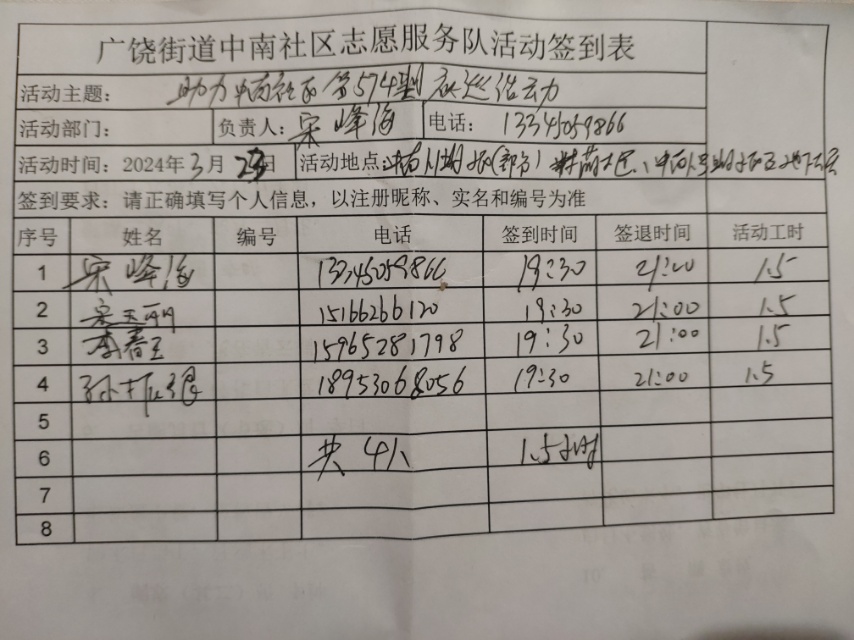 广饶街道中南社区志愿服务队活动签到表
活动主题: 助力中南社区第574期夜巡活动
活动部门: 负责人: 宋峰海 电话: 13345059866
活动时间: 2024年3月25日 活动地点:
签到要求: 请正确填写个人信息，以注册昵称、实名和编号为准
序号 姓名 编号 电话 签到时间 签退时间 活动工时
1 宋峰海 13345059866 19:30 21:00 1.5
2 15166266120 19:30 21:00 1.5
3 李春玉 15965281798 19:30 21:00 1.5
4 孙振强 18953068056 19:30 21:00 1.5
5
6 共4人 1.5小时
7
8